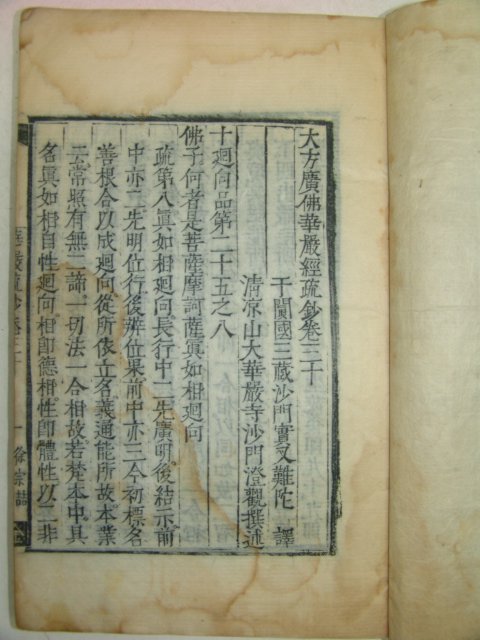 大方廣佛華嚴經疏鈔卷三十
于闐國三藏沙門實叉難陀 譯
清涼山大華嚴寺沙門澄觀撰述
十廻向品第二十五之八
佛子何者是菩薩摩訶薩眞如相廻向
疏第八眞如相廻向長行中二先廣明後結示前
中亦二先明位行後辨位果前中亦三今初標名
善根合以成廻向從所依立名義通能所故本業
云常照有無二諦一切法一合相故若梵本中具
名眞如相自性廻向相卽德相性卽體性以二非
華嚴疏鈔卷三十
一
徐宗喆